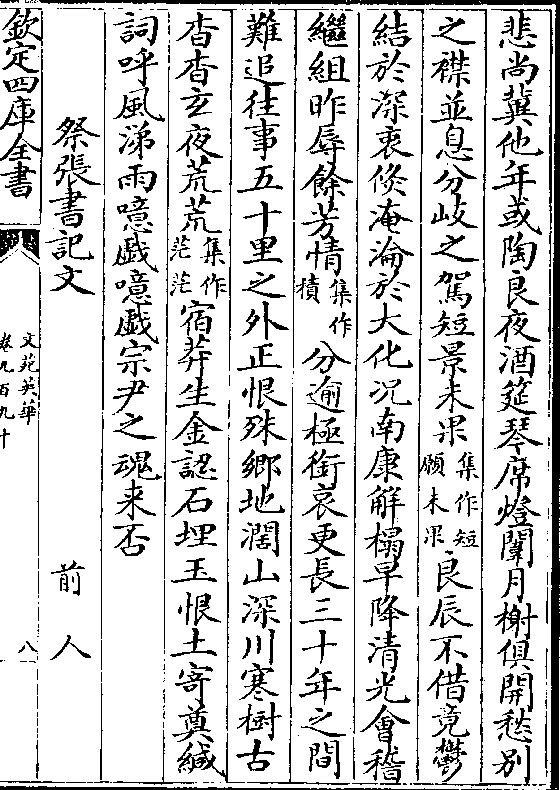 悲尚冀他年或陶良夜酒筵琴席燈闈月榭俱開愁别
之襟並息分岐之駕短景未果集作短願未果良辰不借竟鬱
結於深衷倐淹淪於大化况南康解榻早降清光會稽
繼組昨辱餘芳情集作積分逾極銜哀更長三十年之間
難追往事五十里之外正恨殊鄉地濶山深川寒樹古
杳杳玄夜荒荒集作茫茫宿莽生金認石埋玉恨土寄奠緘
詞呼風涕雨噫戯噫戯宗尹之魂来否
祭張書記文 前人
欽定四庫全書
文苑英華
卷九百九十
八